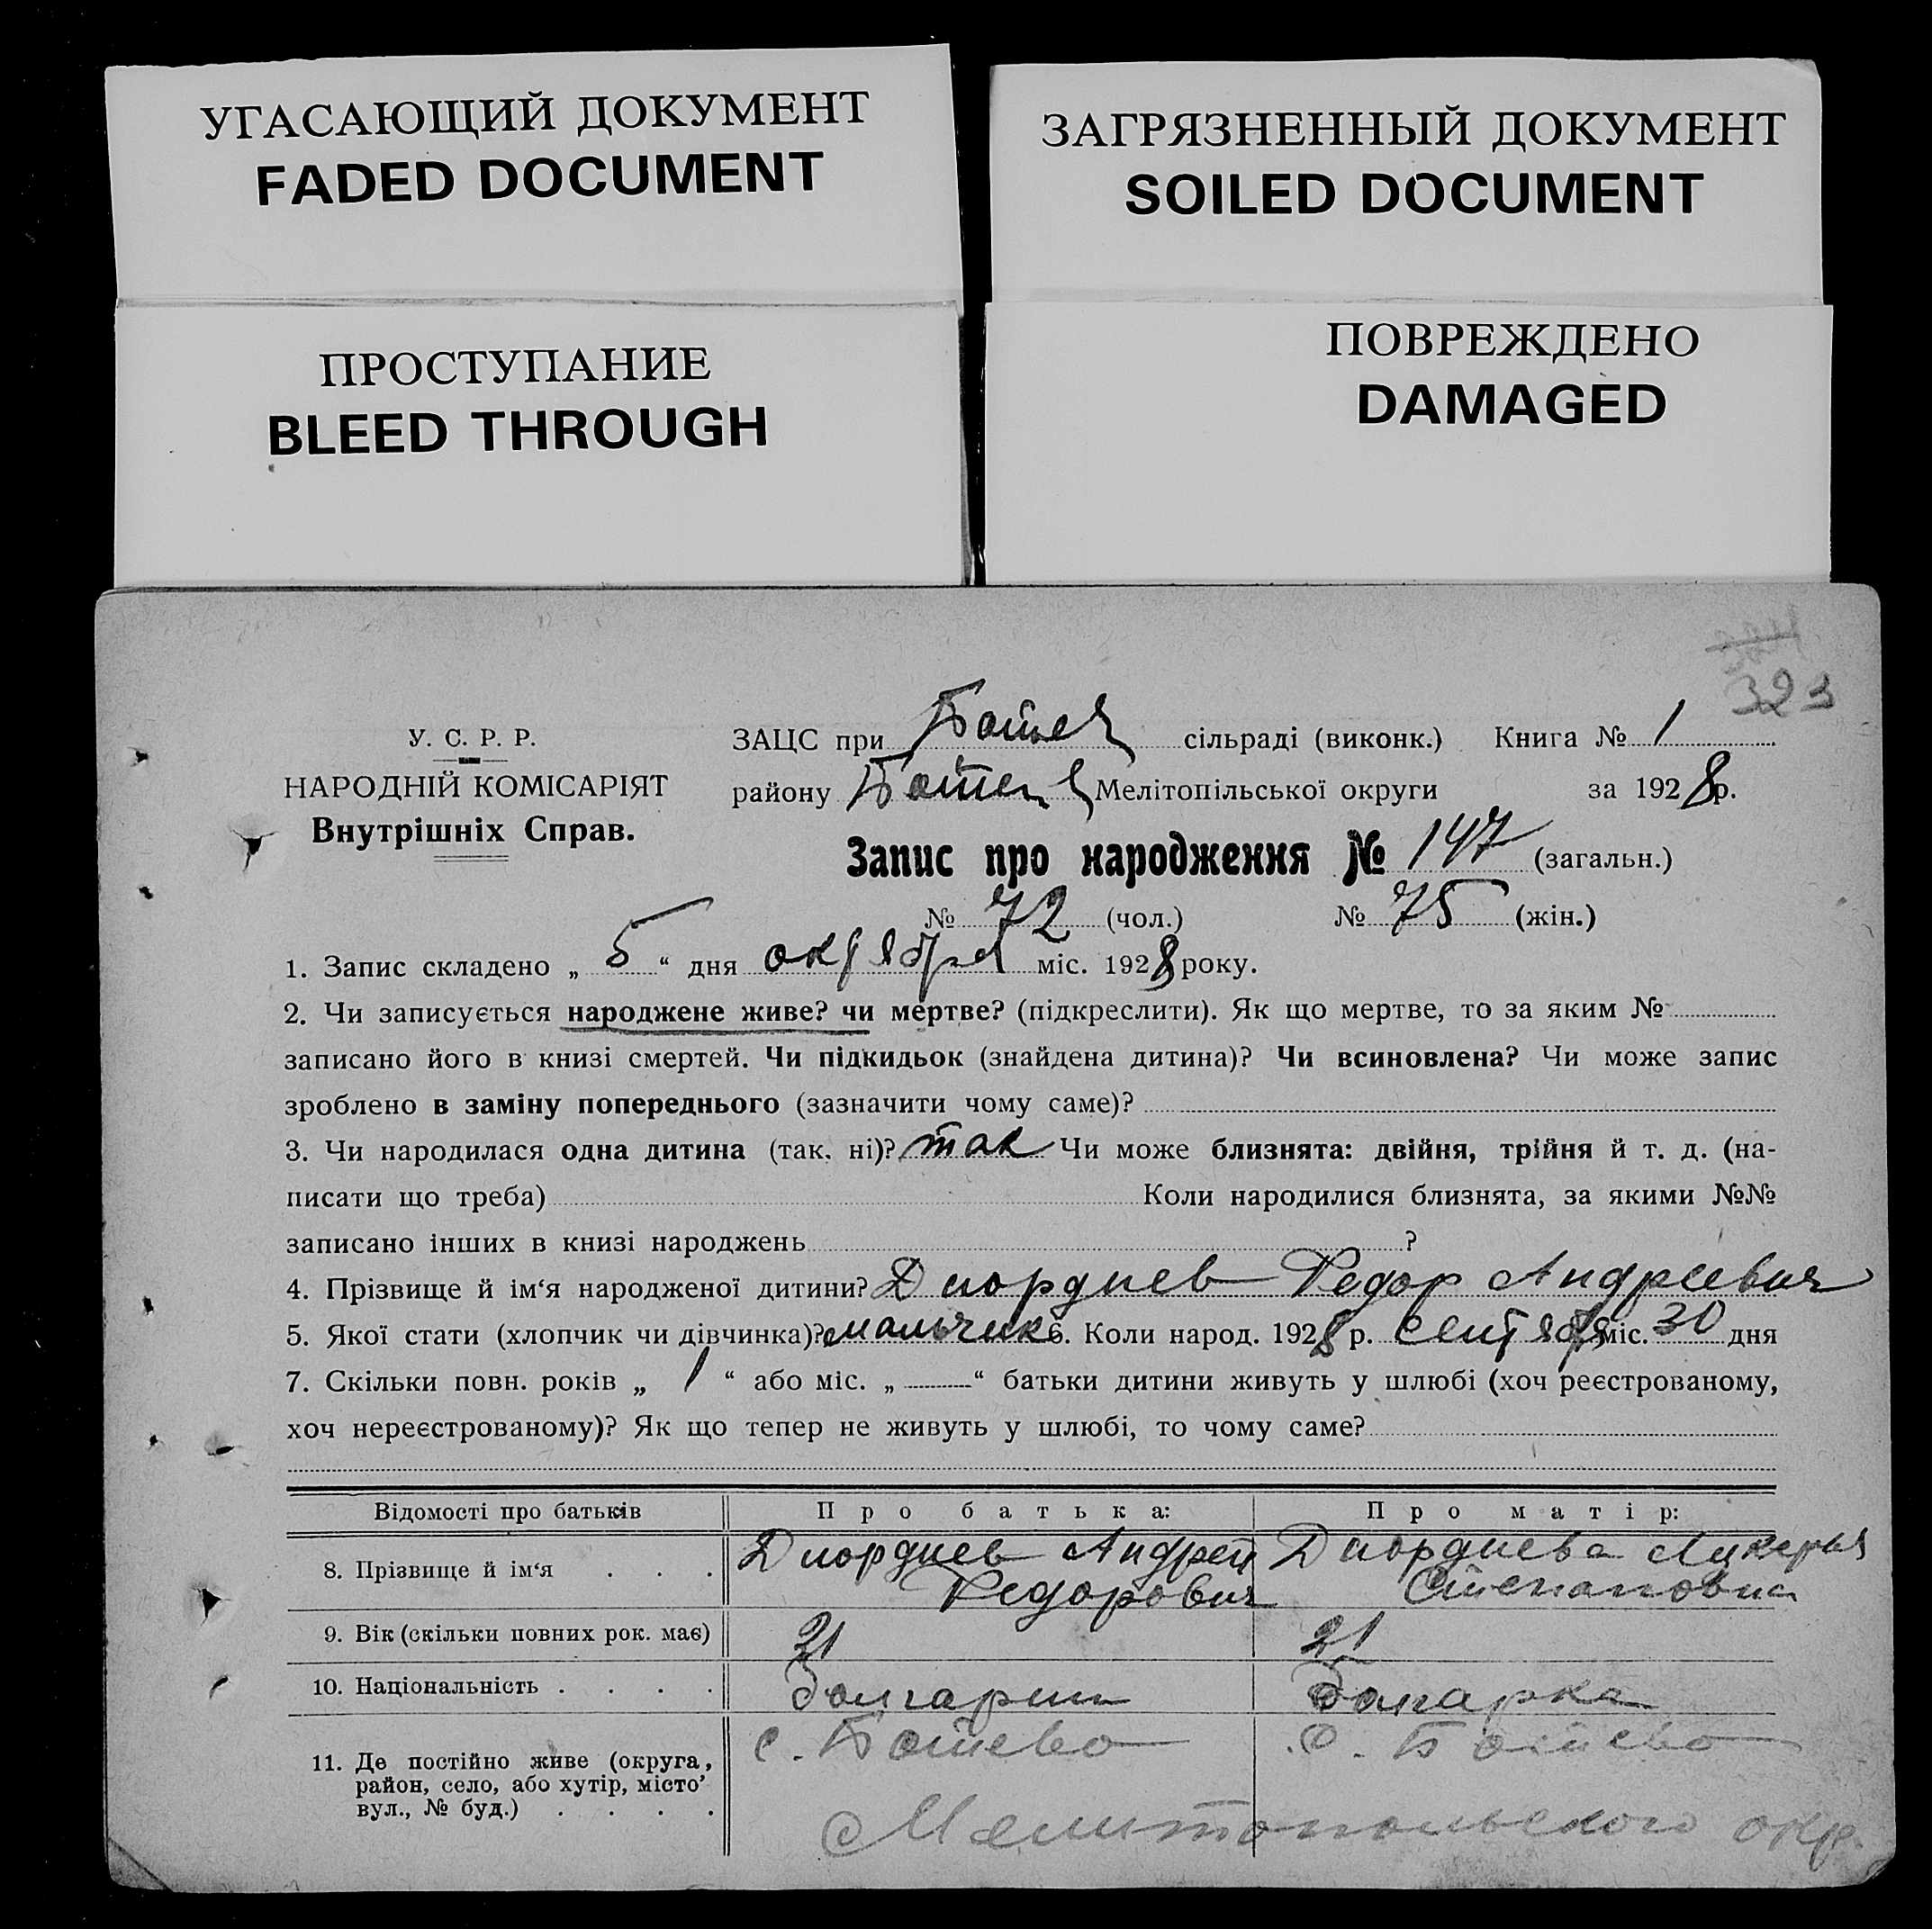 УГАСАЮЩИЙ ДОКУМЕНТ
FADED DOCUMENT
ЗАГРЯЗНЕННЫЙ ДОКУМЕНТ
SOILED DOCUMENT
ПРОСТУПАНИЕ
BLEED THROUGH
ПОВРЕЖДЕНО
DAMAGED
323
У. С. Р. Р.
НАРОДНІЙ КОМІСАРІЯТ
Внутрішніх Справ.
ЗАЦС при Ботев сільраді (виконк.) Книга № 1
району Ботев Мелітопільської округи за 1928 р.
Запис про народження № 147 (загальн.)
№ 72 (чол.) № 75 (жін.)
1. Запис складено „ 5 “ дня октября міс. 1928 року.
2. Чи записується народжене живе? чи мертве? (підкреслити). Як що мертве, то за яким №
записано його в книзі смертей. Чи підкидьок (знайдена дитина)? Чи всиновлена? Чи може запис
зроблено в заміну попереднього (зазначити чому саме)?
3. Чи народилася одна дитина (так. ні)? так Чи може близнята: двійня, трійня й т. д. (на-
писати що треба) Коли народилися близнята, за якими №№
записано інших в книзі народжень ?
4. Прізвище й ім‘я народженої дитини? Диордиев Федор Андреевич
5. Якої стати (хлопчик чи дівчинка)? мальчик 6. Коли народ. 1928 р. сентября міс. 30 дня
7. Скільки повн. років „ 1 “ або міс. „ “ батьки дитини живуть у шлюбі (хоч реєстрованому,
хоч нереєстрованому)? Як що тепер не живуть у шлюбі, то чому саме?
Відомості про батьків Про батька: Про матір:
8. Прізвище й ім‘я . . . Диордиев Андрей Федорович Диордиева Лукерья Степановна
9. Вік (скільки повних рок. має) 21 21
10. Національність . . . . болгарин болгарка
11. Де постійно живе (округа, район, село, або хутір, місто’ вул., № буд.) . . . . с. Ботево с. Ботево
Мелитопольского окр.